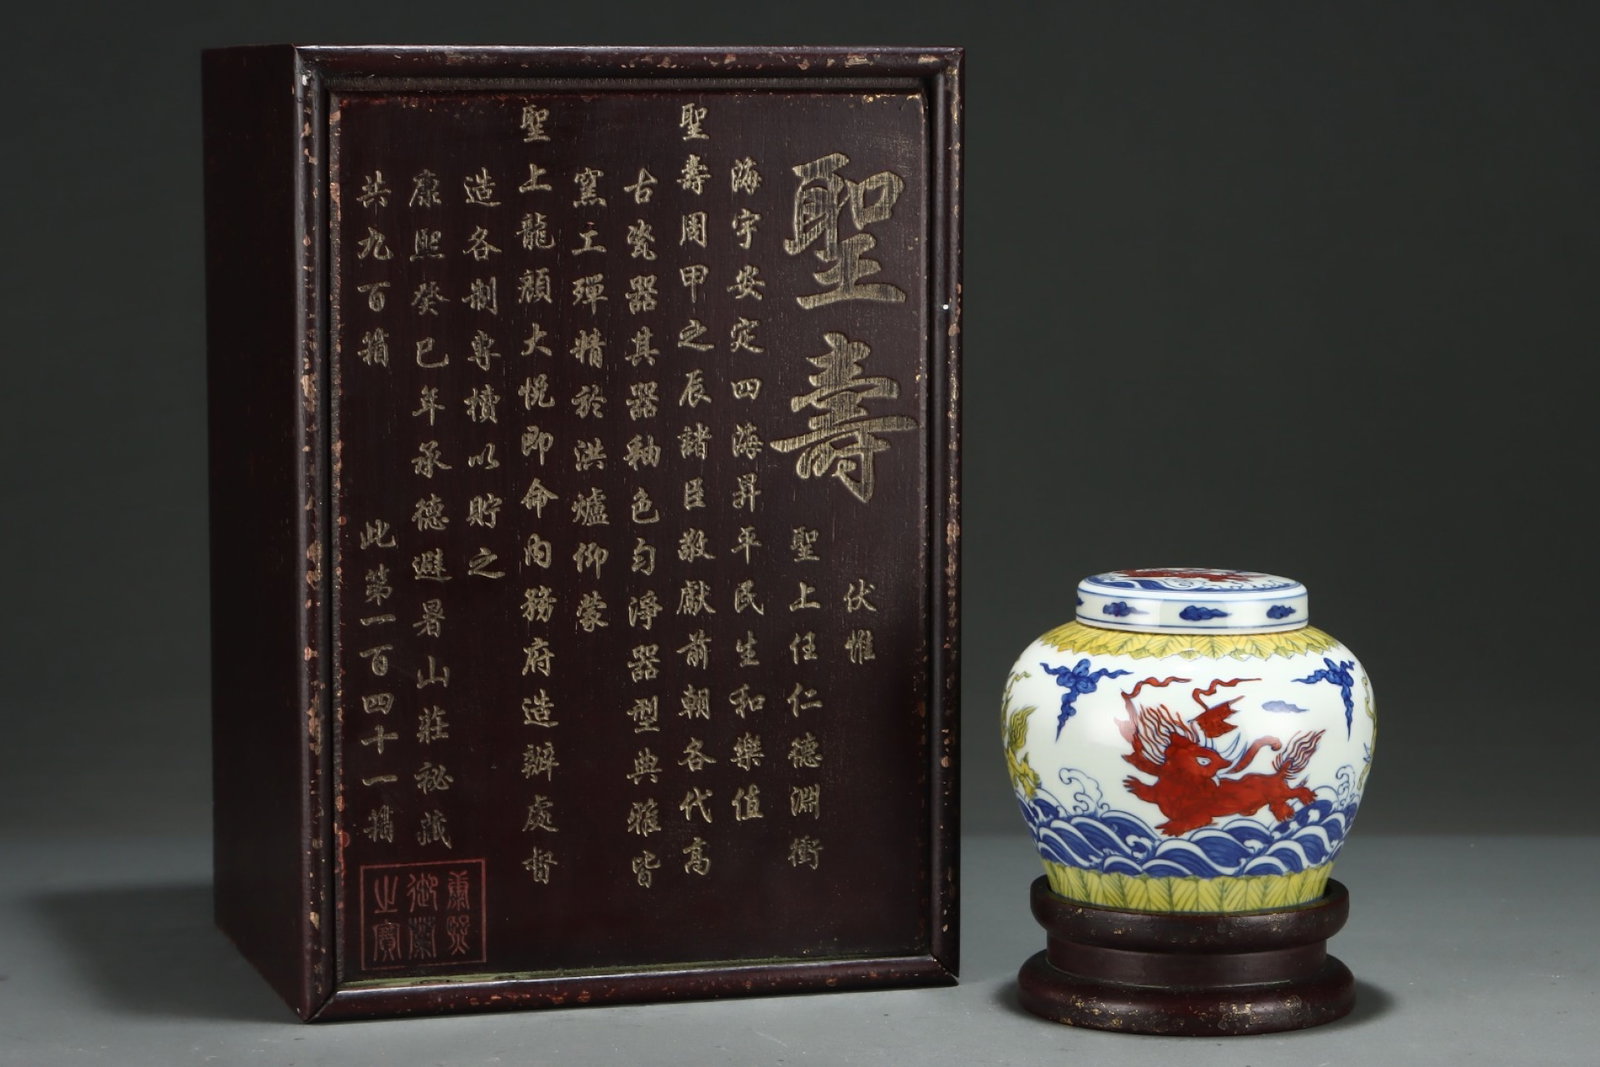 聖壽
伏惟
聖上任仁德淵衝
海宇安定四海昇平民生和樂值
聖壽周甲之辰諸臣敬獻前朝各代高
古瓷器其器釉色勻淨器型典雅皆
窯工殫精於洪爐仰蒙
聖上龍顏大悅即命內務府造辦處督
造各制專櫝以貯之
康熙癸巳年承德避暑山莊祕藏
共九百箱
此第一百四十一箱
康熙
御覽
之寶